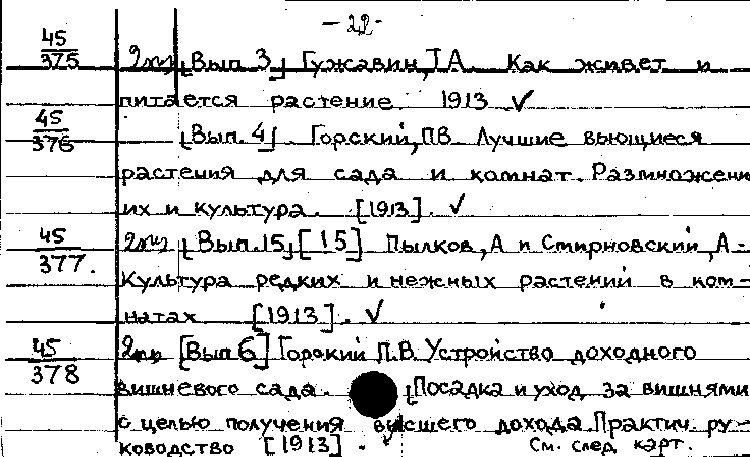 - 22 -
45/375 2экз [Вып. 3] Гужавин, Т.А. Как живет и
питается растение. 1913 ✓
45/376 [Вып. 4]. Горский, П.В. Лучшие вьющиеся
растения для сада и комнат. Размножени
их и культура. [1913]. ✓
45/377. 2экз [Вып. 15] [15] Пылков, А и Смирновский, А -
Культура редких и нежных растений в ком-
натах [1913]. ✓
45/378 2экз [Вып 6] Горский П.В. Устройство доходного
вишневого сада. [Посадка и уход за вишнями
с целью получения высшего дохода. Практич. ру-
ководство [1913]. ✓ См. след. карт.